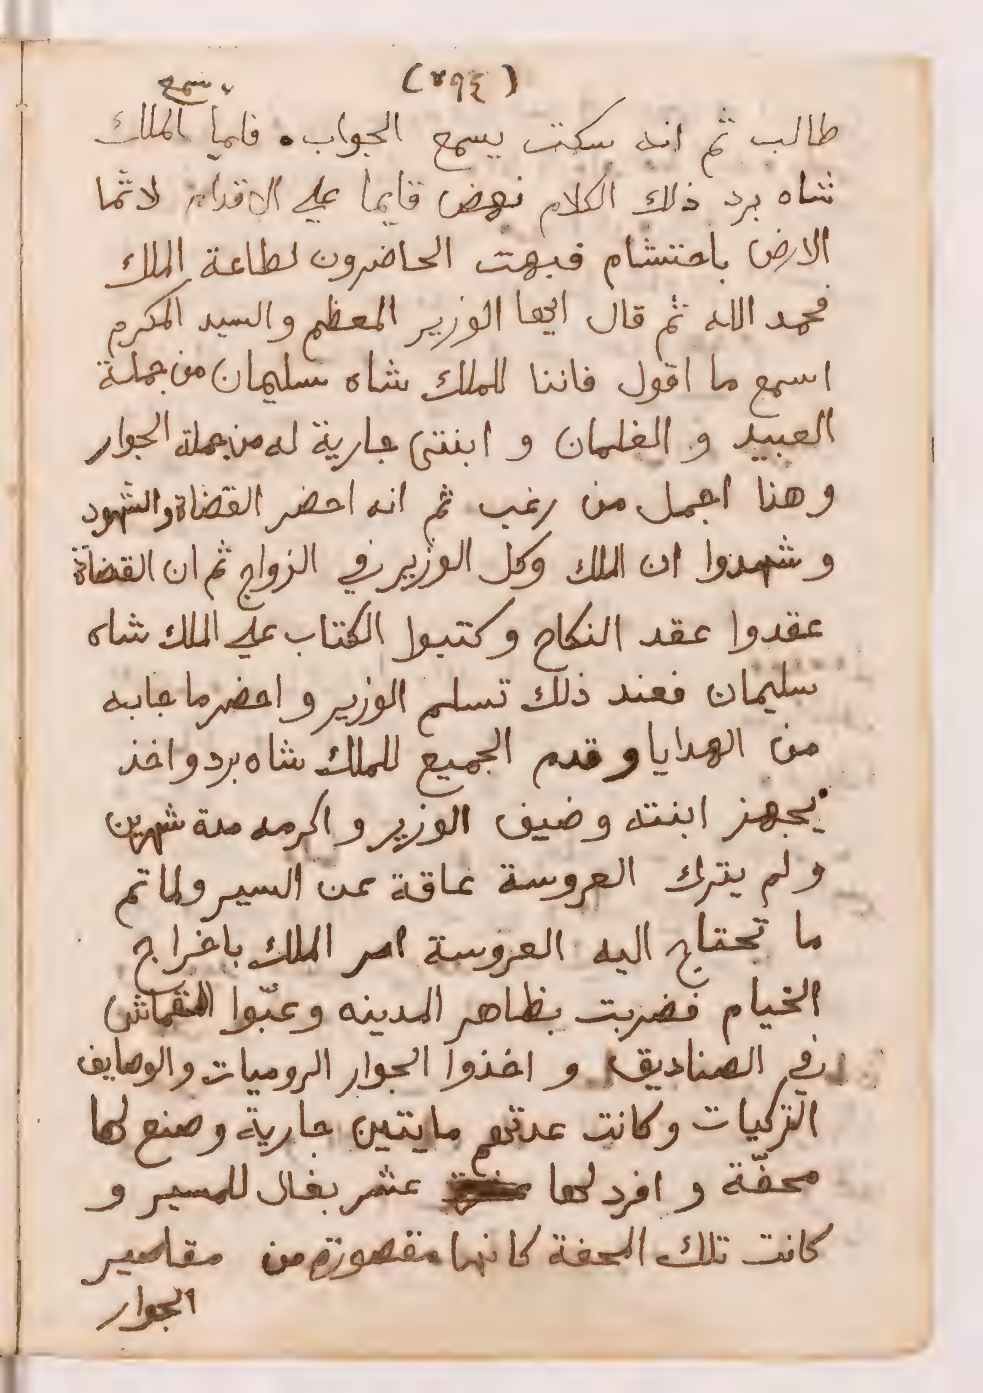 (٢٩٤)
سمع
طالب ثم انه سكت يسمع الجواب. فلما الملك
شاه برد ذلك الكلام نهض قايما علي الاقدام لاثما
الارض باحتشام فبهت الحاضرون لطاعة الملك
فحمد الله ثم قال ايها الوزير المعظم والسيد المكرم
اسمع ما اقول فاننا للملك شاه سليمان من جملة
العبيد و الغلمان و ابنتى جارية له من جملة الجوار
وهذا اجمل من رغب ثم انه احضر القضاة والشهود
وشهدوا ان الملك وكل الوزير في الزواج ثم ان القضاة
عقدوا عقد النكاح وكتبوا الكتاب علي الملك شاه
سليمان فعند ذلك تسلم الوزير و احضر ما جابه
من الهدايا وقدم الجميع للملك شاه برد واخذ
يجهز ابنته وضيف الوزير واكرمه مدة شهرين
ولم يترك العروسة عاقة عن السير ولما تم
ما تحتاج اليه العروسة امر الملك باخراج
الخيام فضربت بظاهر المدينه وعبّوا القماش
في الصناديق و اخذوا الجوار الروميات والوصايف
التركيات وكانت عدتهم مايتين جارية وصنع لها
محفّة و افرد لها عشر بغال للمسير و
كانت تلك المحفة كانها مقصورة من مقاصير
الجوار